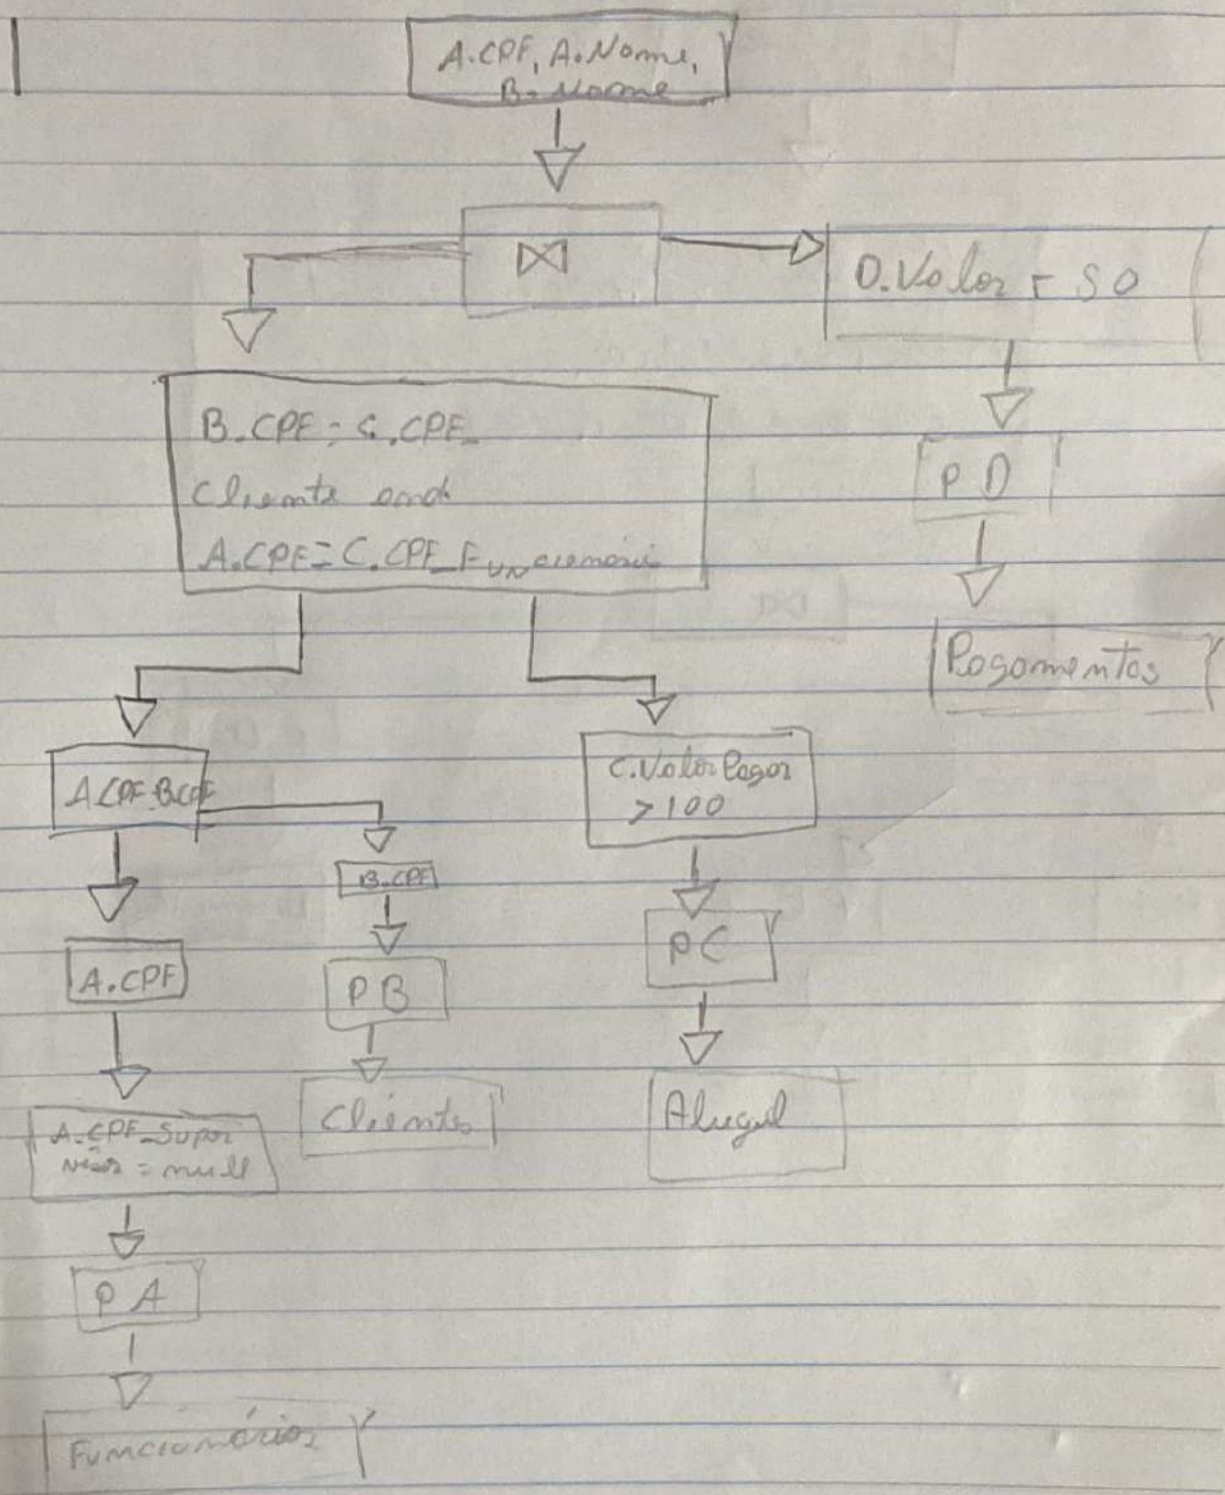 A.CPF, A.Nome,
B.Nome
⋈
D.Valor = 50
B.CPF = C.CPF_
Cliente and
A.CPF = C.CPF_Funcionário
P D
Pagamentos
A.CPF B.CPF
C.Valor Pagar
> 100
B.CPF
A.CPF
P B
P C
A.CPF_Super
visor = null
Clientes
Aluguel
P A
Funcionários